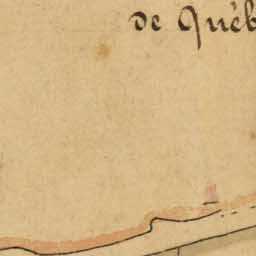 de Québ